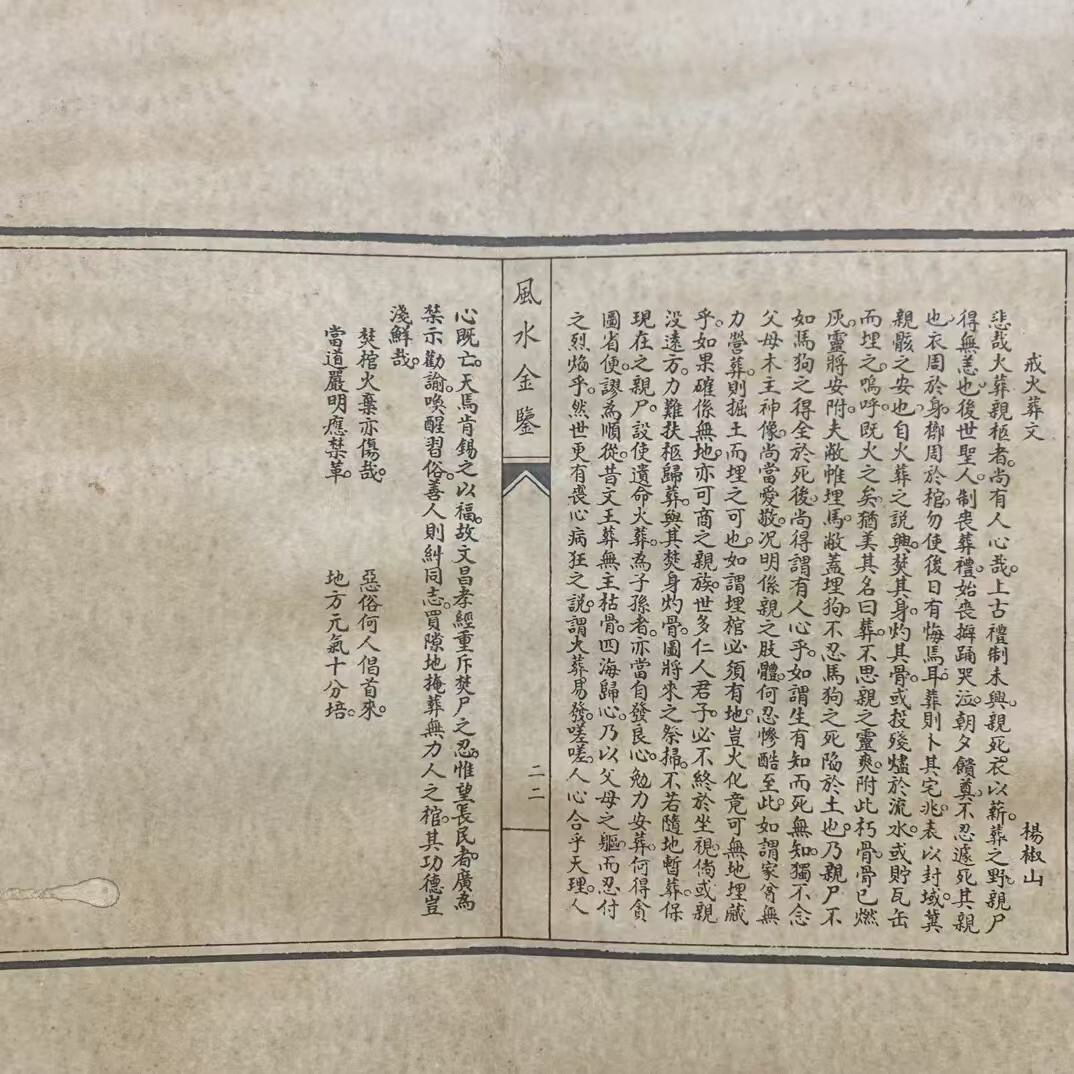 戒火葬文 楊椒山
悲哉火葬親柩者。尚有人心哉。上古禮制未興。親死。衣以薪。葬之野。親尸
得無恙也。後世聖人。制喪葬禮。始喪擗踊哭泣。朝夕饋奠。不忍遽死其親
也。衣周於身。槨周於棺。勿使後日有悔焉耳。葬則卜其宅兆。表以封域。冀
親骸之安也。自火葬之說興。焚其身。灼其骨。或投殘燼於流水。或貯瓦缶
而埋之。嗚呼。既火之矣。猶美其名曰葬。不思親之靈爽。附此朽骨。骨已燃
灰。靈將安附。夫敝帷埋馬。敝蓋埋狗。不忍馬狗之死陷於土也。乃親尸不
如馬狗之得全於死後。尚得謂有人心乎。如謂生有知而死無知。獨不念
父母木主神像。尚當愛敬。况明係親之肢體。何忍慘酷至此。如謂家貧無
力營葬。則掘土而埋之可也。如謂埋棺必須有地。豈火化竟可無地埋藏
乎。如果確係無地。亦可商之親族。世多仁人君子。必不終於坐視。倘或親
没遠方。力難扶柩歸葬。與其焚身灼骨。圖將來之祭掃。不若隨地暫葬。保
現在之親尸。設使遺命火葬。為子孫者。亦當自發良心。勉力安葬。何得貪
圖省便。謬為順從。昔文王葬無主枯骨。四海歸心。乃以父母之軀。而忍付
之烈焰乎。然世更有喪心病狂之說。謂火葬易發。嗟嗟。人心合乎天理。人
風水金鑒
二二
心既亡。天焉肯錫之以福。故文昌孝經重斥焚尸之忍。惟望長民者。廣為
禁示勸諭。喚醒習俗。善人則糾同志。買隙地掩葬無力人之棺。其功德豈
淺鮮哉。
焚棺火棄亦傷哉。 惡俗何人倡首來。
當道嚴明應禁革。 地方元氣十分培。